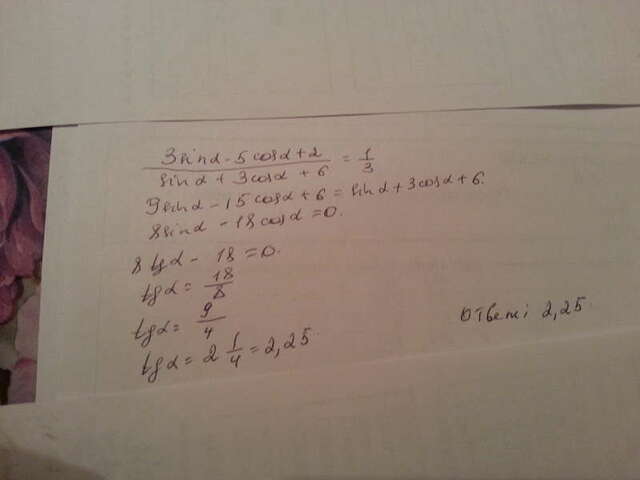 (3sinα - 5cosα + 2)/(sinα + 3cosα + 6) = 1/3
9sinα - 15cosα + 6 = sinα + 3cosα + 6.
8sinα - 18cosα = 0.
8tgα - 18 = 0.
tgα = 18/8
tgα = 9/4
tgα = 2 1/4 = 2,25.
Ответ: 2,25.